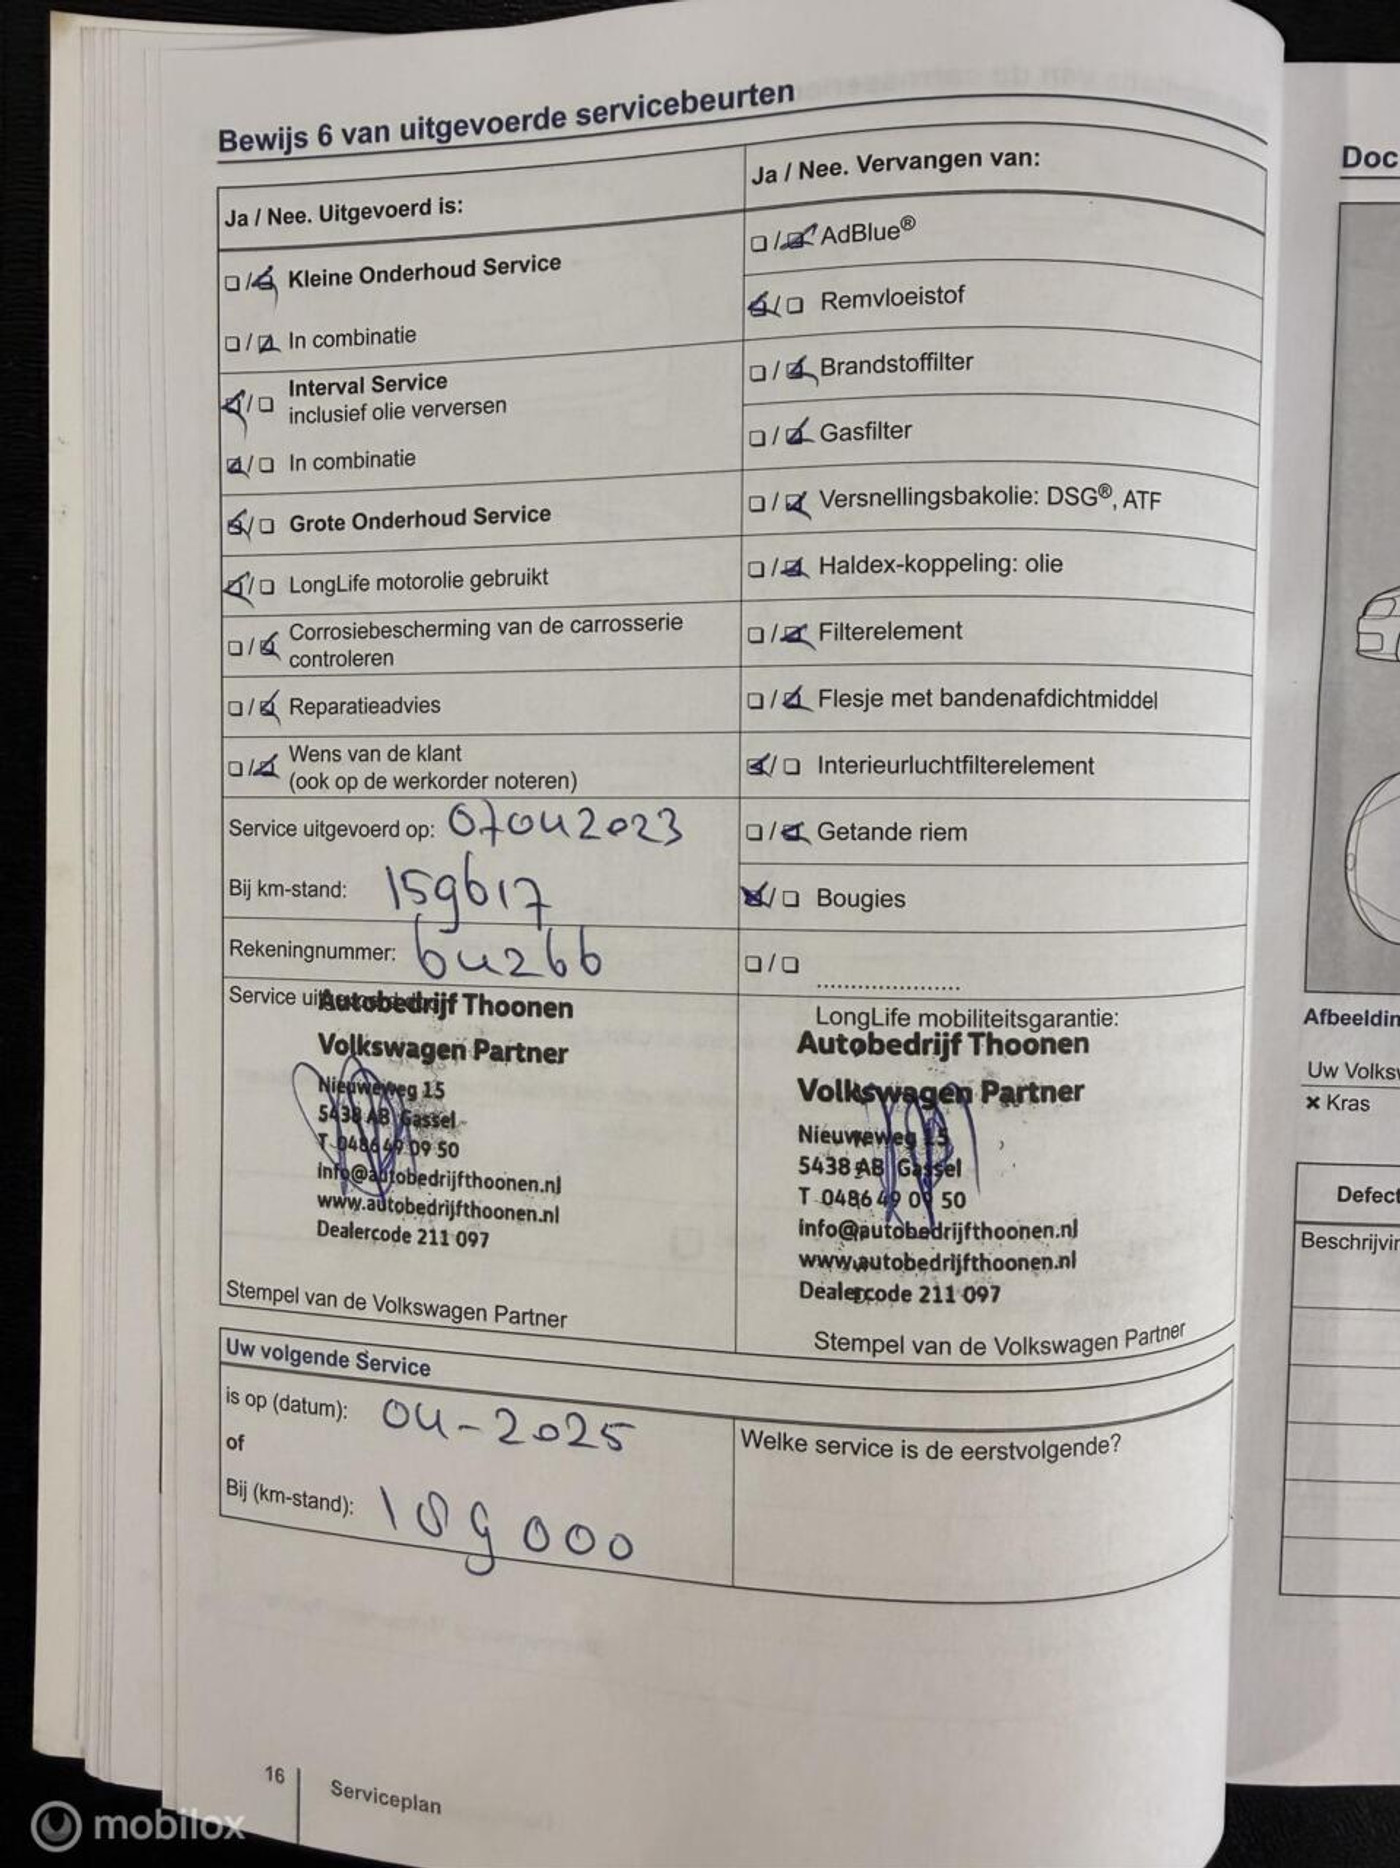 Bewijs 6 van uitgevoerde servicebeurten
Ja / Nee. Uitgevoerd is:
Kleine Onderhoud Service
In combinatie
Interval Service
inclusief olie verversen
In combinatie
Grote Onderhoud Service
LongLife motorolie gebruikt
Corrosiebescherming van de carrosserie
controleren
Reparatieadvies
Wens van de klant
(ook op de werkorder noteren)
Service uitgevoerd op: 07042023
Bij km-stand: 159617
Rekeningnummer: 64266
Service
Autobedrijf Thoonen
Volkswagen Partner
Nieuweweg 15
5438 AB Gassel
T 0486 49 09 50
info@autobedrijfthoonen.nl
www.autobedrijfthoonen.nl
Dealercode 211 097
Stempel van de Volkswagen Partner
Ja / Nee. Vervangen van:
AdBlue®
Remvloeistof
Brandstoffilter
Gasfilter
Versnellingsbakolie: DSG®, ATF
Haldex-koppeling: olie
Filterelement
Flesje met bandenafdichtmiddel
Interieurluchtfilterelement
Getande riem
Bougies
LongLife mobiliteitsgarantie:
Autobedrijf Thoonen
Volkswagen Partner
Nieuweweg 15
5438 AB Gassel
T 0486 49 09 50
info@autobedrijfthoonen.nl
www.autobedrijfthoonen.nl
Dealercode 211 097
Stempel van de Volkswagen Partner
Uw volgende Service
is op (datum): 04-2025
of
Bij (km-stand): 189000
Welke service is de eerstvolgende?
16
Serviceplan
mobilox
Doc
Afbeeldin
Uw Volksw
× Kras
Defect
Beschrijvin